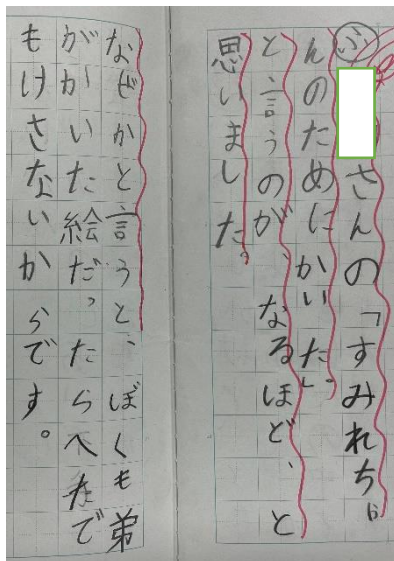 ふ
さんの「すみれちゃ
んのためにかいた」。
と言うのが、なるほど、と
思いました。
なぜかと言うと、ぼくも弟
がかいた絵だったらへたで
もけさないからです。